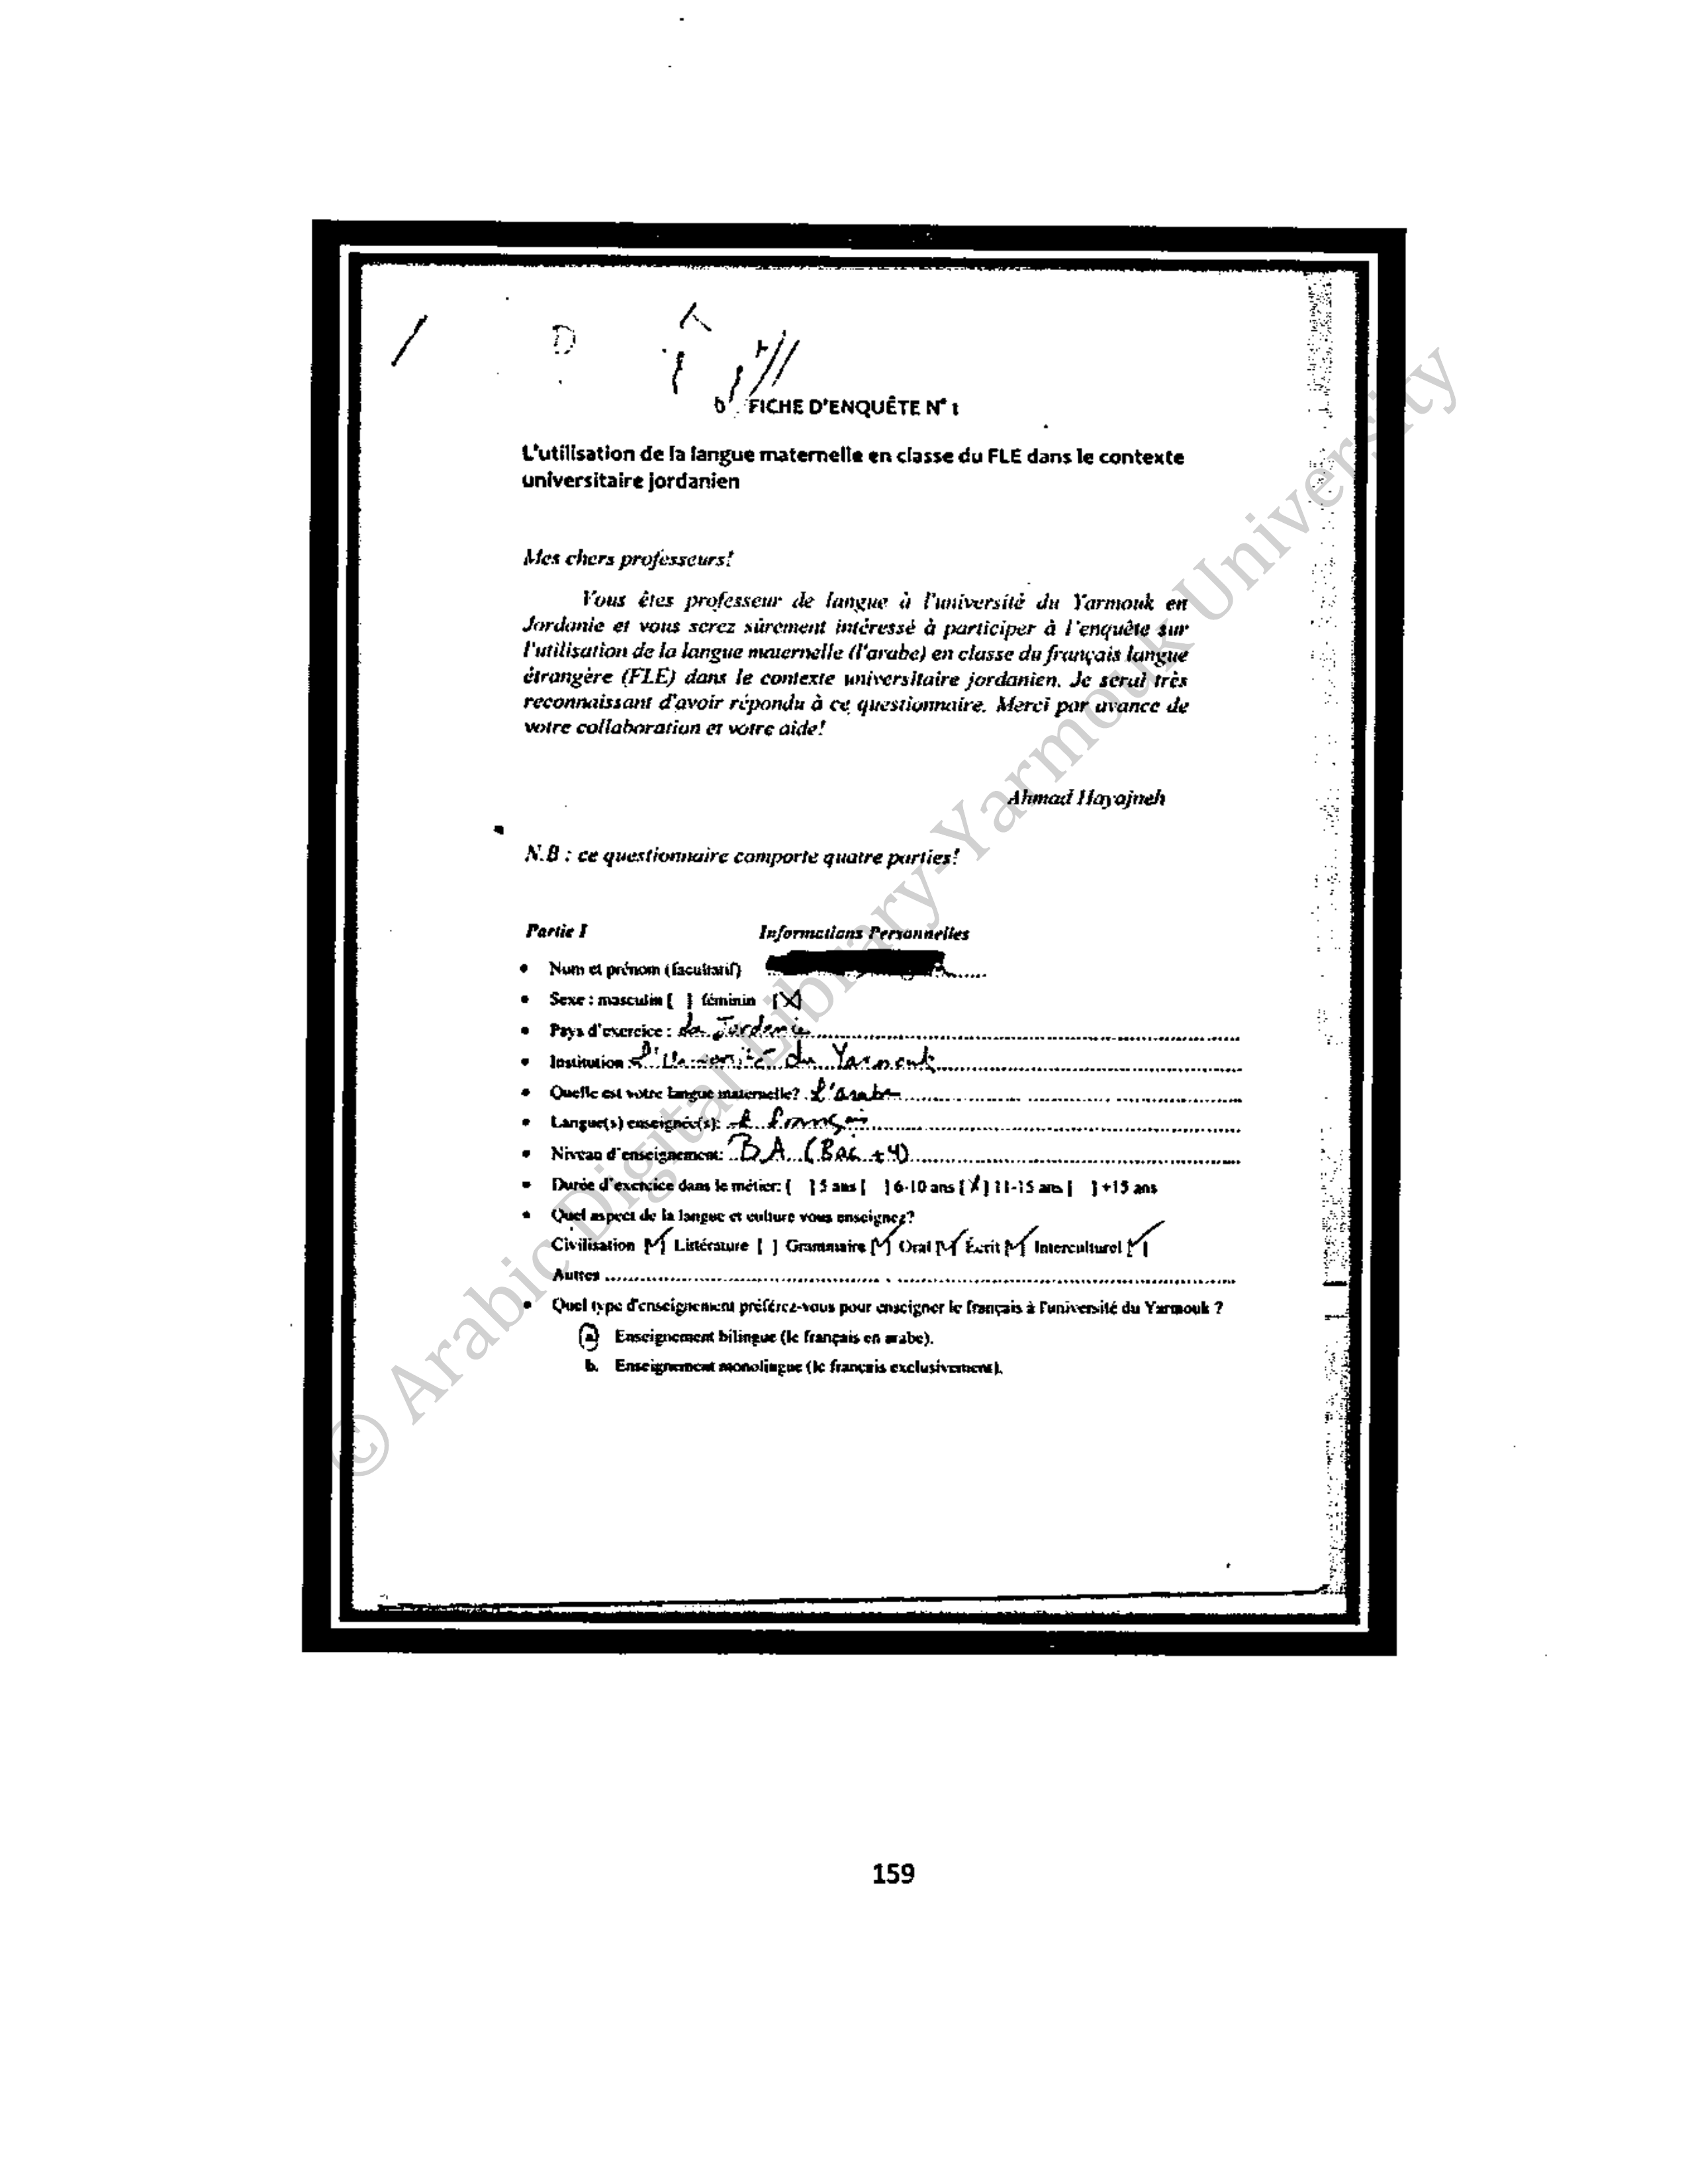 FICHE D'ENQUÊTE N° 1
L'utilisation de la langue maternelle en classe du FLE dans le contexte
universitaire jordanien
Mes chers professeurs!
Vous êtes professeur de langue à l'université du Yarmouk en
Jordanie et vous serez sûrement intéressé à participer à l'enquête sur
l'utilisation de la langue maternelle (l'arabe) en classe du français langue
étrangère (FLE) dans le contexte universitaire jordanien. Je serai très
reconnaissant d'avoir répondu à ce questionnaire. Merci par avance de
votre collaboration et votre aide!
Ahmad Hayajneh
N.B : ce questionnaire comporte quatre parties!
Partie I Informations Personnelles
• Nom et prénom (facultatif)
• Sexe : masculin [ ] féminin [X]
• Pays d'exercice : La Jordanie
• Institution L'Université du Yarmouk
• Quelle est votre langue maternelle? L'arabe
• Langue(s) enseignée(s): Le français
• Niveau d'enseignement: BA (Bac +4)
• Durée d'exercice dans le métier: [ ] 5 ans [ ] 6-10 ans [X] 11-15 ans [ ] +15 ans
• Quel aspect de la langue et culture vous enseignez?
Civilisation [✓] Littérature [ ] Grammaire [✓] Oral [✓] Écrit [✓] Interculturel [✓]
Autres
• Quel type d'enseignement préférez-vous pour enseigner le français à l'université du Yarmouk ?
a. Enseignement bilingue (le français en arabe).
b. Enseignement monolingue (le français exclusivement).
159
© Arabic Digital Library-Yarmouk University